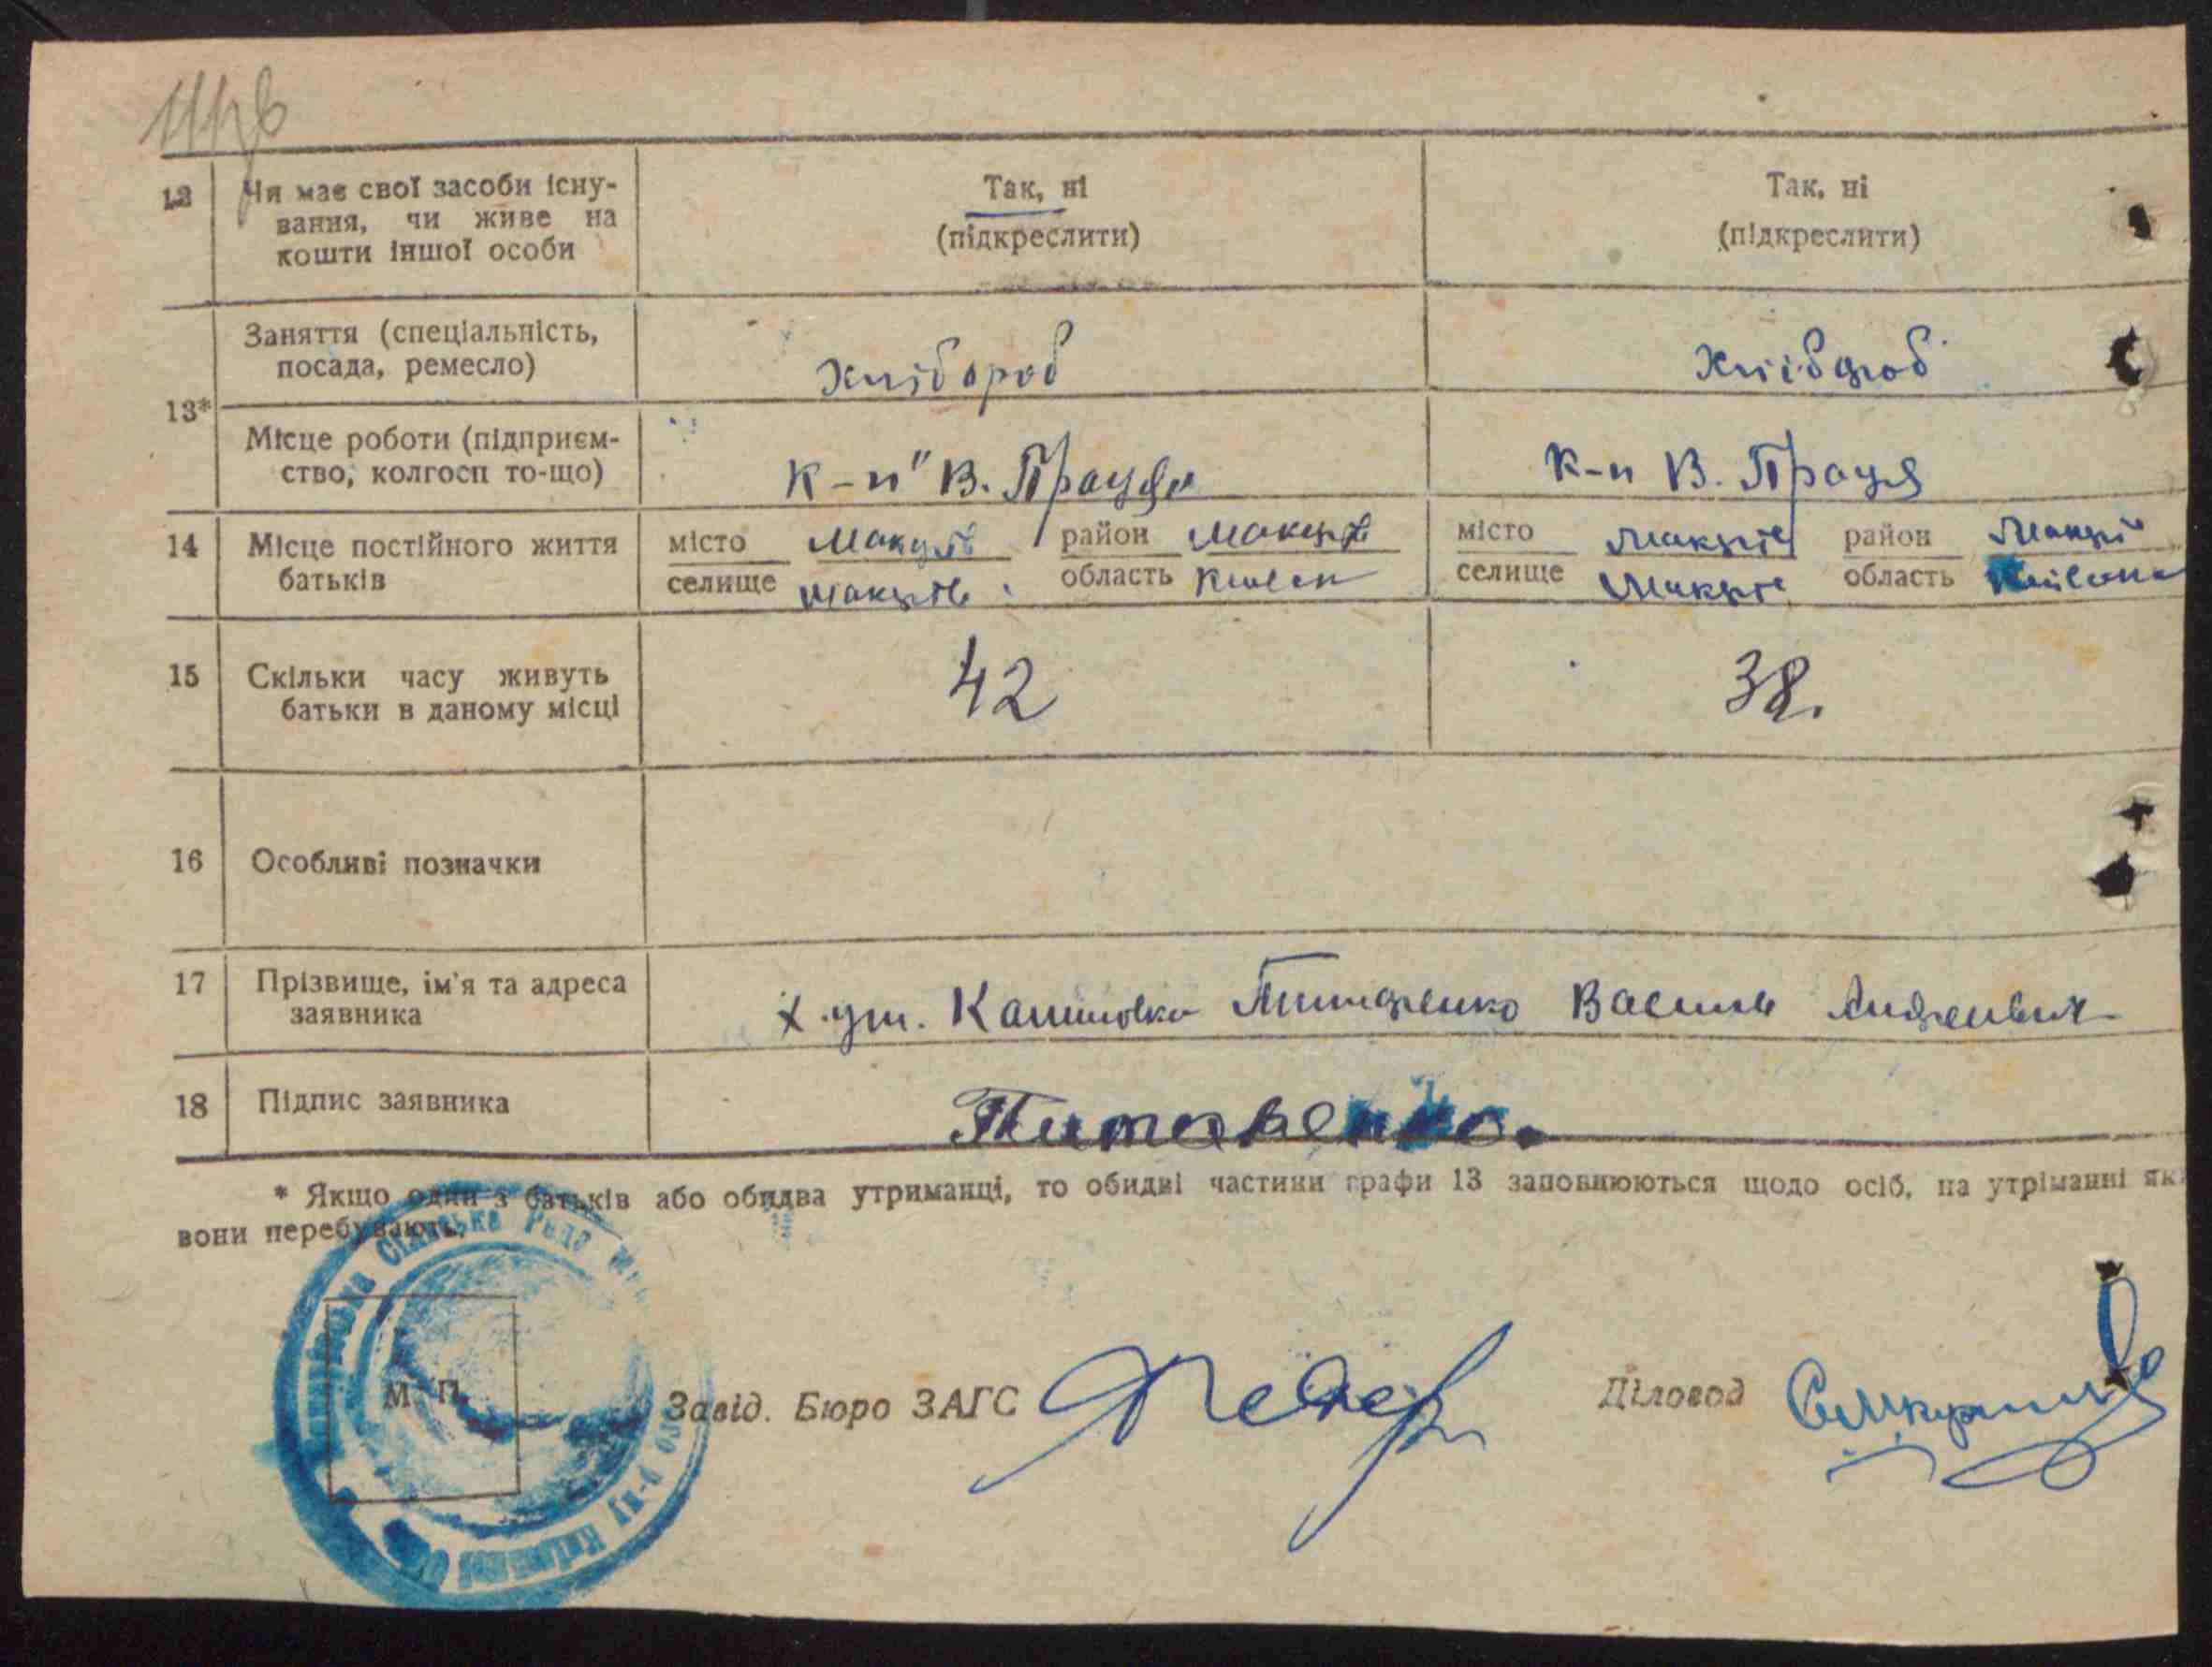 12 Чи має свої засоби існу-
вання, чи живе на
кошти іншої особи
Так, ні
(підкреслити)
Так, ні
(підкреслити)
13*
Заняття (спеціальність,
посада, ремесло)
хлібороб
хлібороб
Місце роботи (підприєм-
ство, колгосп то-що)
к-п" В. Праця
к-п В. Праця
14 Місце постійного життя
батьків
місто Макарів район Макарів
селище Макарів область Київськ
місто Макарів район Макарів
селище Макарів область
15 Скільки часу живуть
батьки в даному місці
42
38.
16 Особливі позначки
17 Прізвище, ім'я та адреса
заявника
х. ут. Василь Андреевич
18 Підпис заявника
* Якщо один з батьків або обидва утриманці, то обидві частини графи 13 заповнюються щодо осіб, на утріманні як
вони перебувають.
Сільська Рада
р-ну Київської
М. П.
Завід. Бюро ЗАГС
Діловод